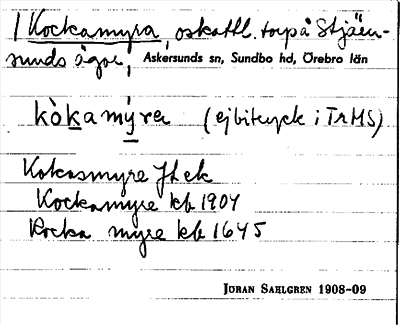 1 Kockamyra, oskattl. torp å Stjärn-
sunds ägor, Askersunds sn, Sundbo hd, Örebro län
kòkamýra (ej bitryck i TrMS)
Kokasmyre JL ek
Kockamyre kb 1904
Kocka myre kb 1645
JÖRAN SAHLGREN 1908-09